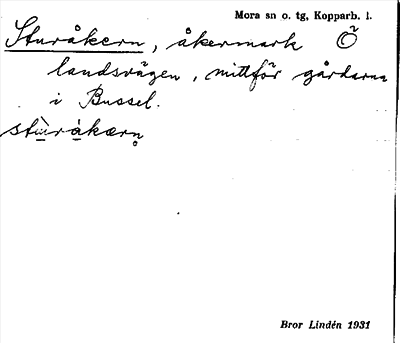 Mora sn o. tg, Kopparb. l.
Sturåkern, åkermark Ö
landsvägen, mittför gårdarna
i Bussel.
stùràkærn̥
Bror Lindén 1931